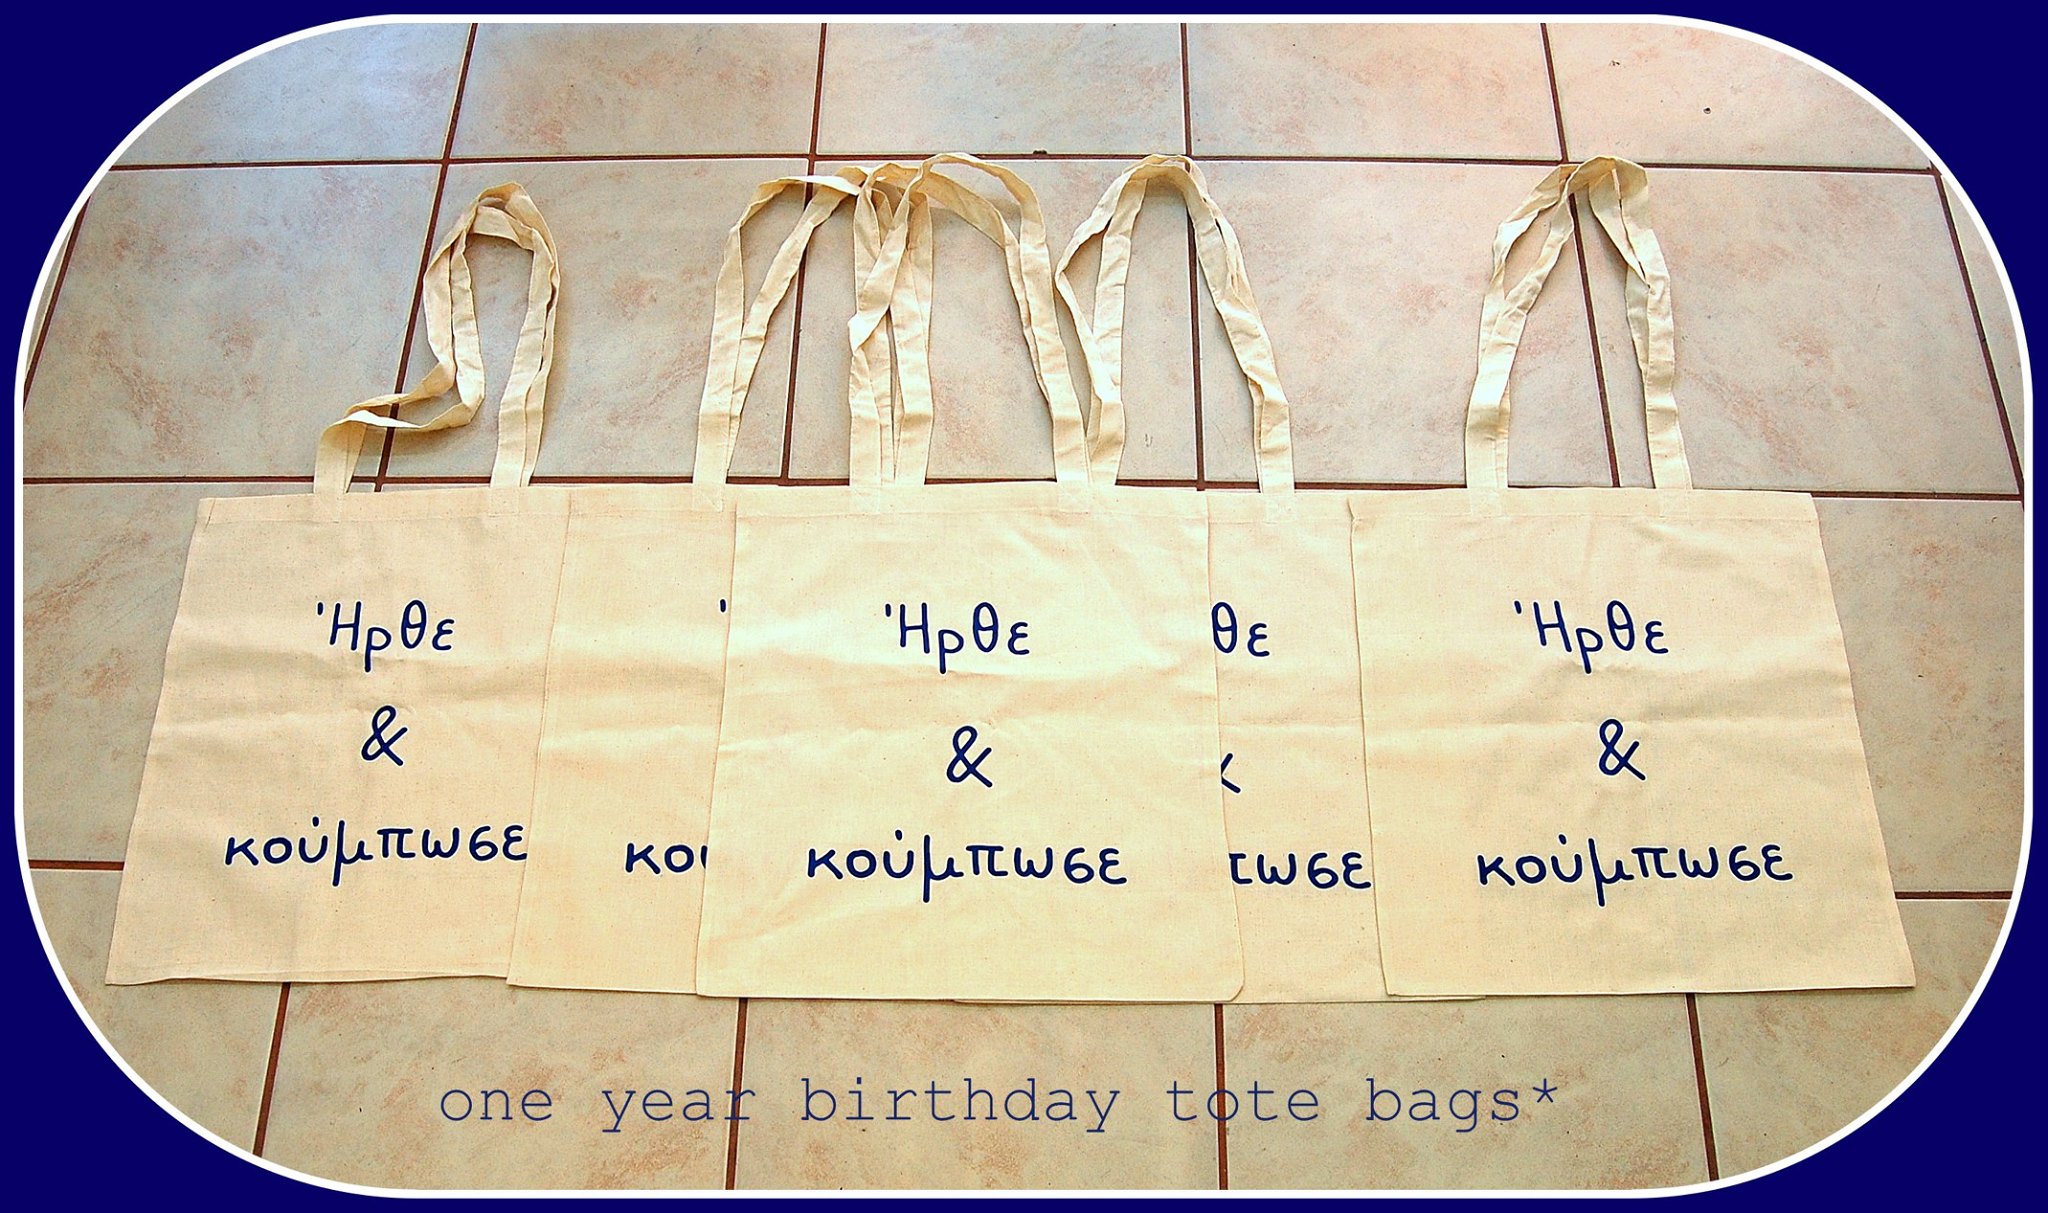 Ήρθε
&
κούμπωσε
κο
Ήρθε
&
κούμπωσε
θε
πωσε
Ήρθε
&
κούμπωσε
one year birthday tote bags*